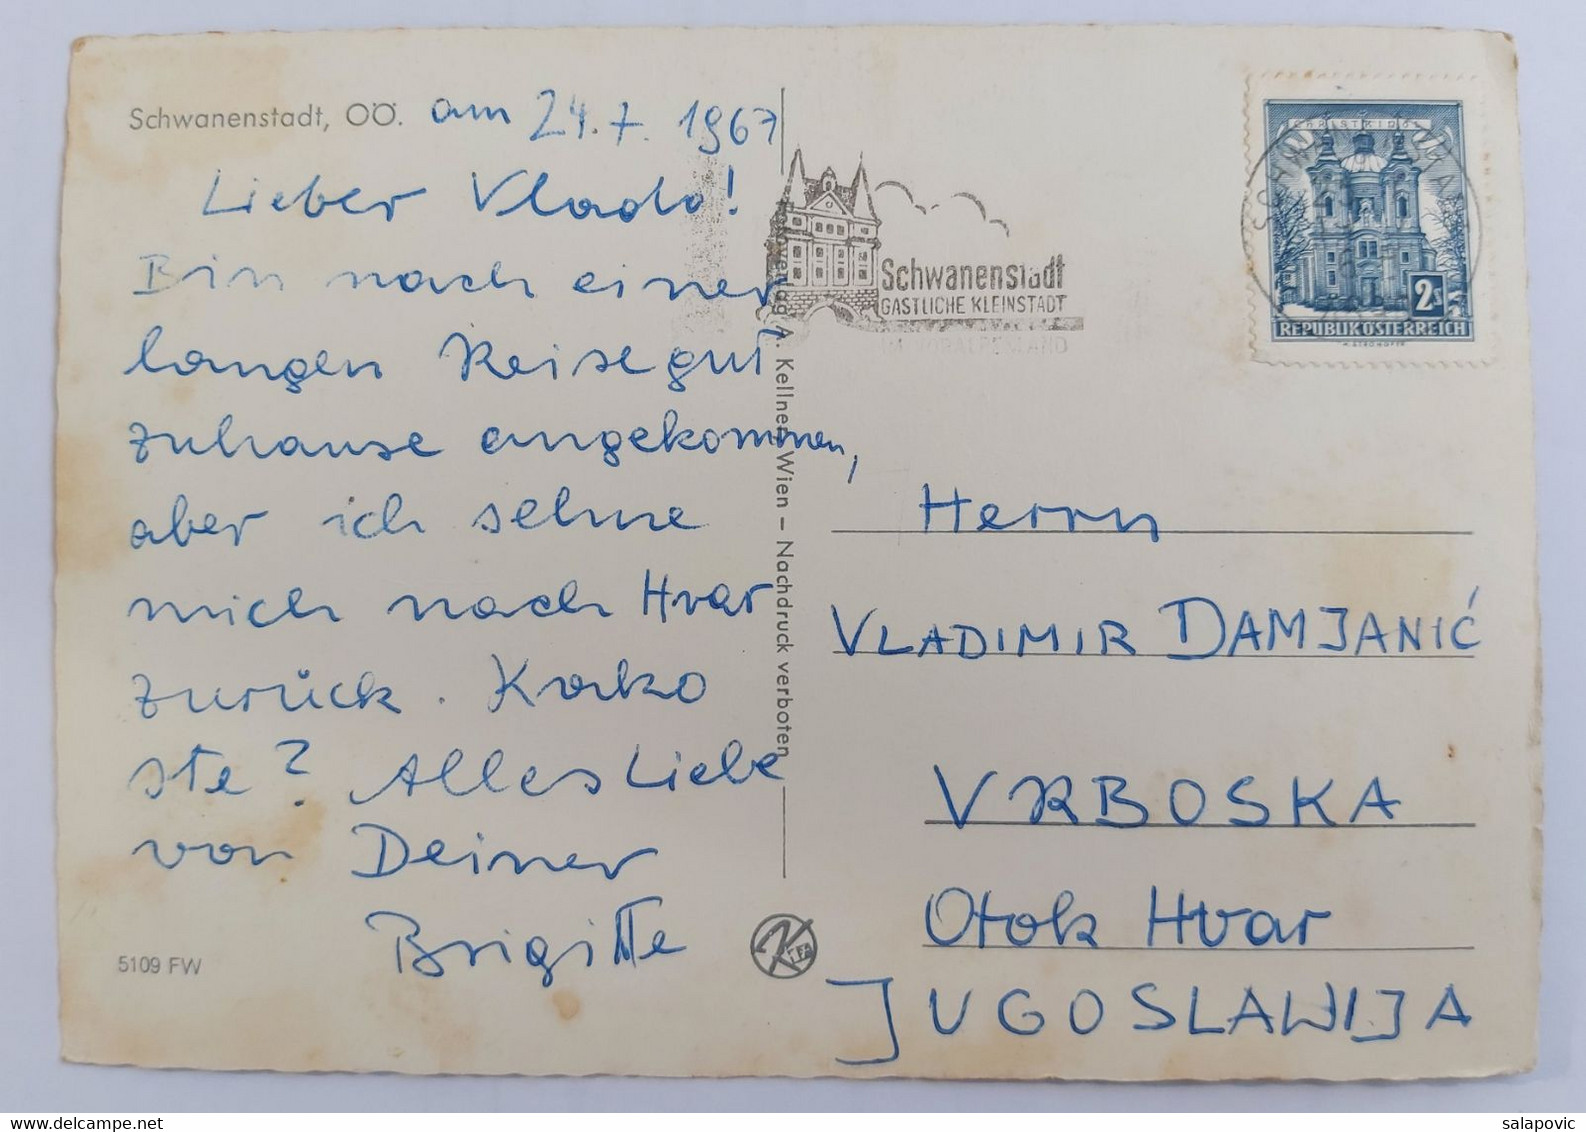 Schwanenstadt, OÖ. am 24.7.1967
Lieber Vlado!
Bin nach einer
langen Reise gut
zuhause angekommen,
aber ich sehne
mich nach Hvar
zurück. Kako
ste? Alles Liebe
von Deiner
Brigitte
5109 FW
A. Kellner, Wien – Nachdruck verboten
Schwanenstadt
GASTLICHE KLEINSTADT
IM VORALPENLAND
CHRISTKINDL
2s
REPUBLIK ÖSTERREICH
Herrn
VLADIMIR DAMJANIĆ
VRBOSKA
Otok Hvar
JUGOSLAWIJA
delcampe.net
salapovic